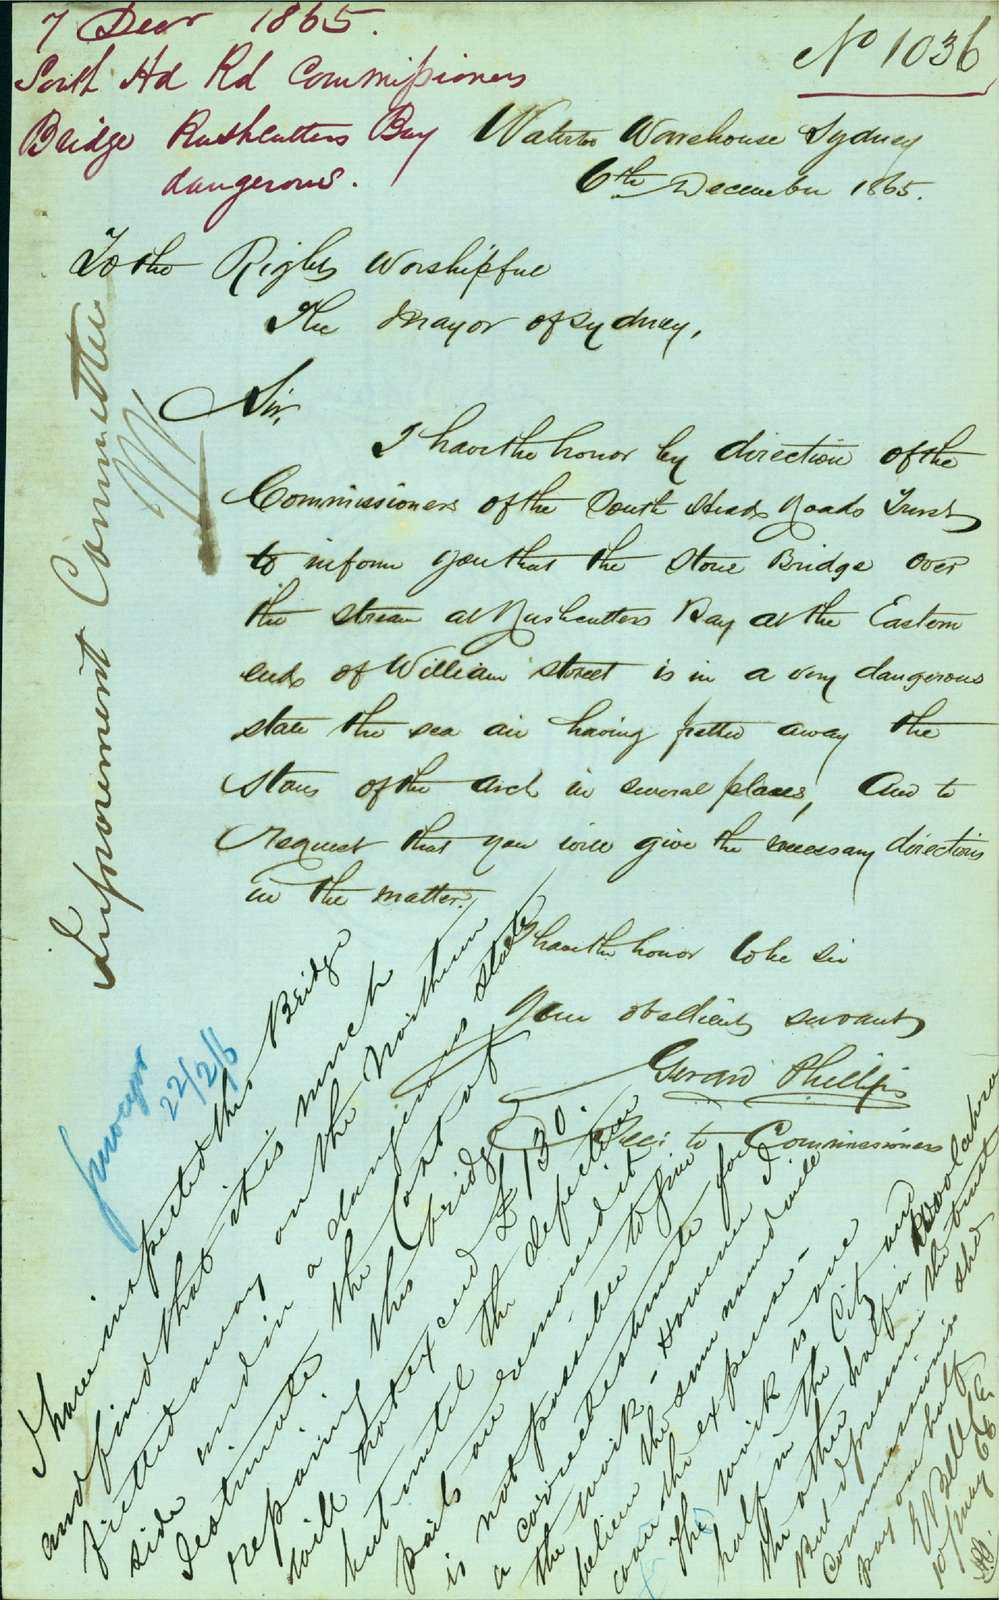 7 Decr 1865.
South Hd Rd Commissioners
Bridge Rushcutters Bay
dangerous.
No 1036
Waterloo Warehouse Sydney
6th December 1865.
To the Right Worshipful
The Mayor of Sydney,
Sir,
I have the honor by direction of the
Commissioners of the South Head Roads Trust
to inform you that the Stone Bridge over
the stream at Rushcutters Bay at the Eastern
end of William Street is in a very dangerous
state the sea air having fretted away the
stones of the arch in several places, and to
request that you will give the necessary directions
in the matter.
I have the honor to be Sir
Your obedient servant
Gerard Phillips
Secr to Commissioners
Improvement Committee
22/2/6
I have inspected this Bridge
and find that it is much
fretted away on the Northern
side and in a dangerous state
I estimate the Cost of
repairing this bridge
will not exceed £130.
but until the defective
parts are removed it
is not possible to give
a correct estimate for
the work - However I
believe the sum named will
cover the expense -
The work is one
half in the City and
the other half in Woolahra
But I presume the trust
Commissioners shd
pay one half
E Bell C.E.
10 Jany 66